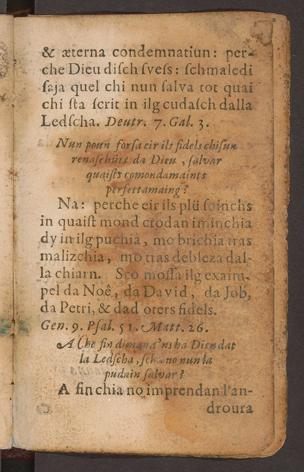 & æterna condemnatiun: per-
che Dieu disch svess: schmaledi
saja quel chi nun salva tot quai
chi sta scrit in ilg cudasch dalla
Ledscha. Deutr. 7. Gal. 3.
Nun poun forsa eir ils fidels chi sun
renaschüts da Dieu, salvar
quaists comondamaints
perfettamaing?
Na: perche eir ils plü soinchs
in quaist mond crodan iminchia
dy in ilg puchia, mo brichia tras
malizchia, mo tras debleza dal-
la chiarn. Sco mossa ilg exaim-
pel da Noê, da David, da Job,
da Petri, & dad oters fidels.
Gen. 9. Psal. 51. Matt. 26.
A Che fin ha Dieu dat
la Ledscha, scha no nun la
pudain salvar?
A fin chia no imprendan l'an-
droura